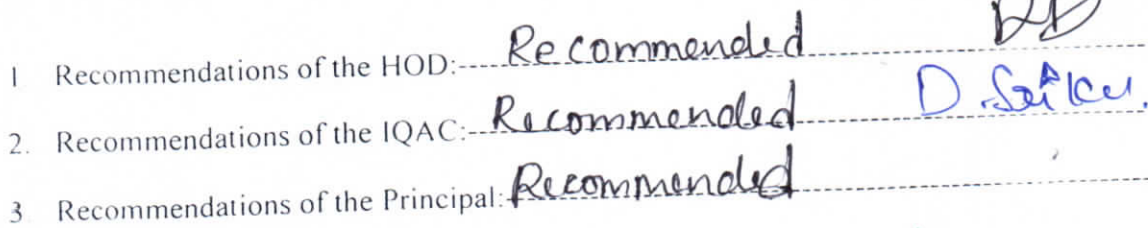 1 Recommendations of the HOD:----Recommended
2. Recommendations of the IQAC:--Recommended D.
3 Recommendations of the Principal:-Recommended